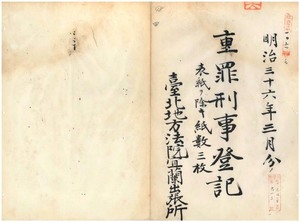 明治三十六年三月分
重罪刑事登記
表紙ヲ除キ紙數三枚
臺北地方法院宜蘭出張所